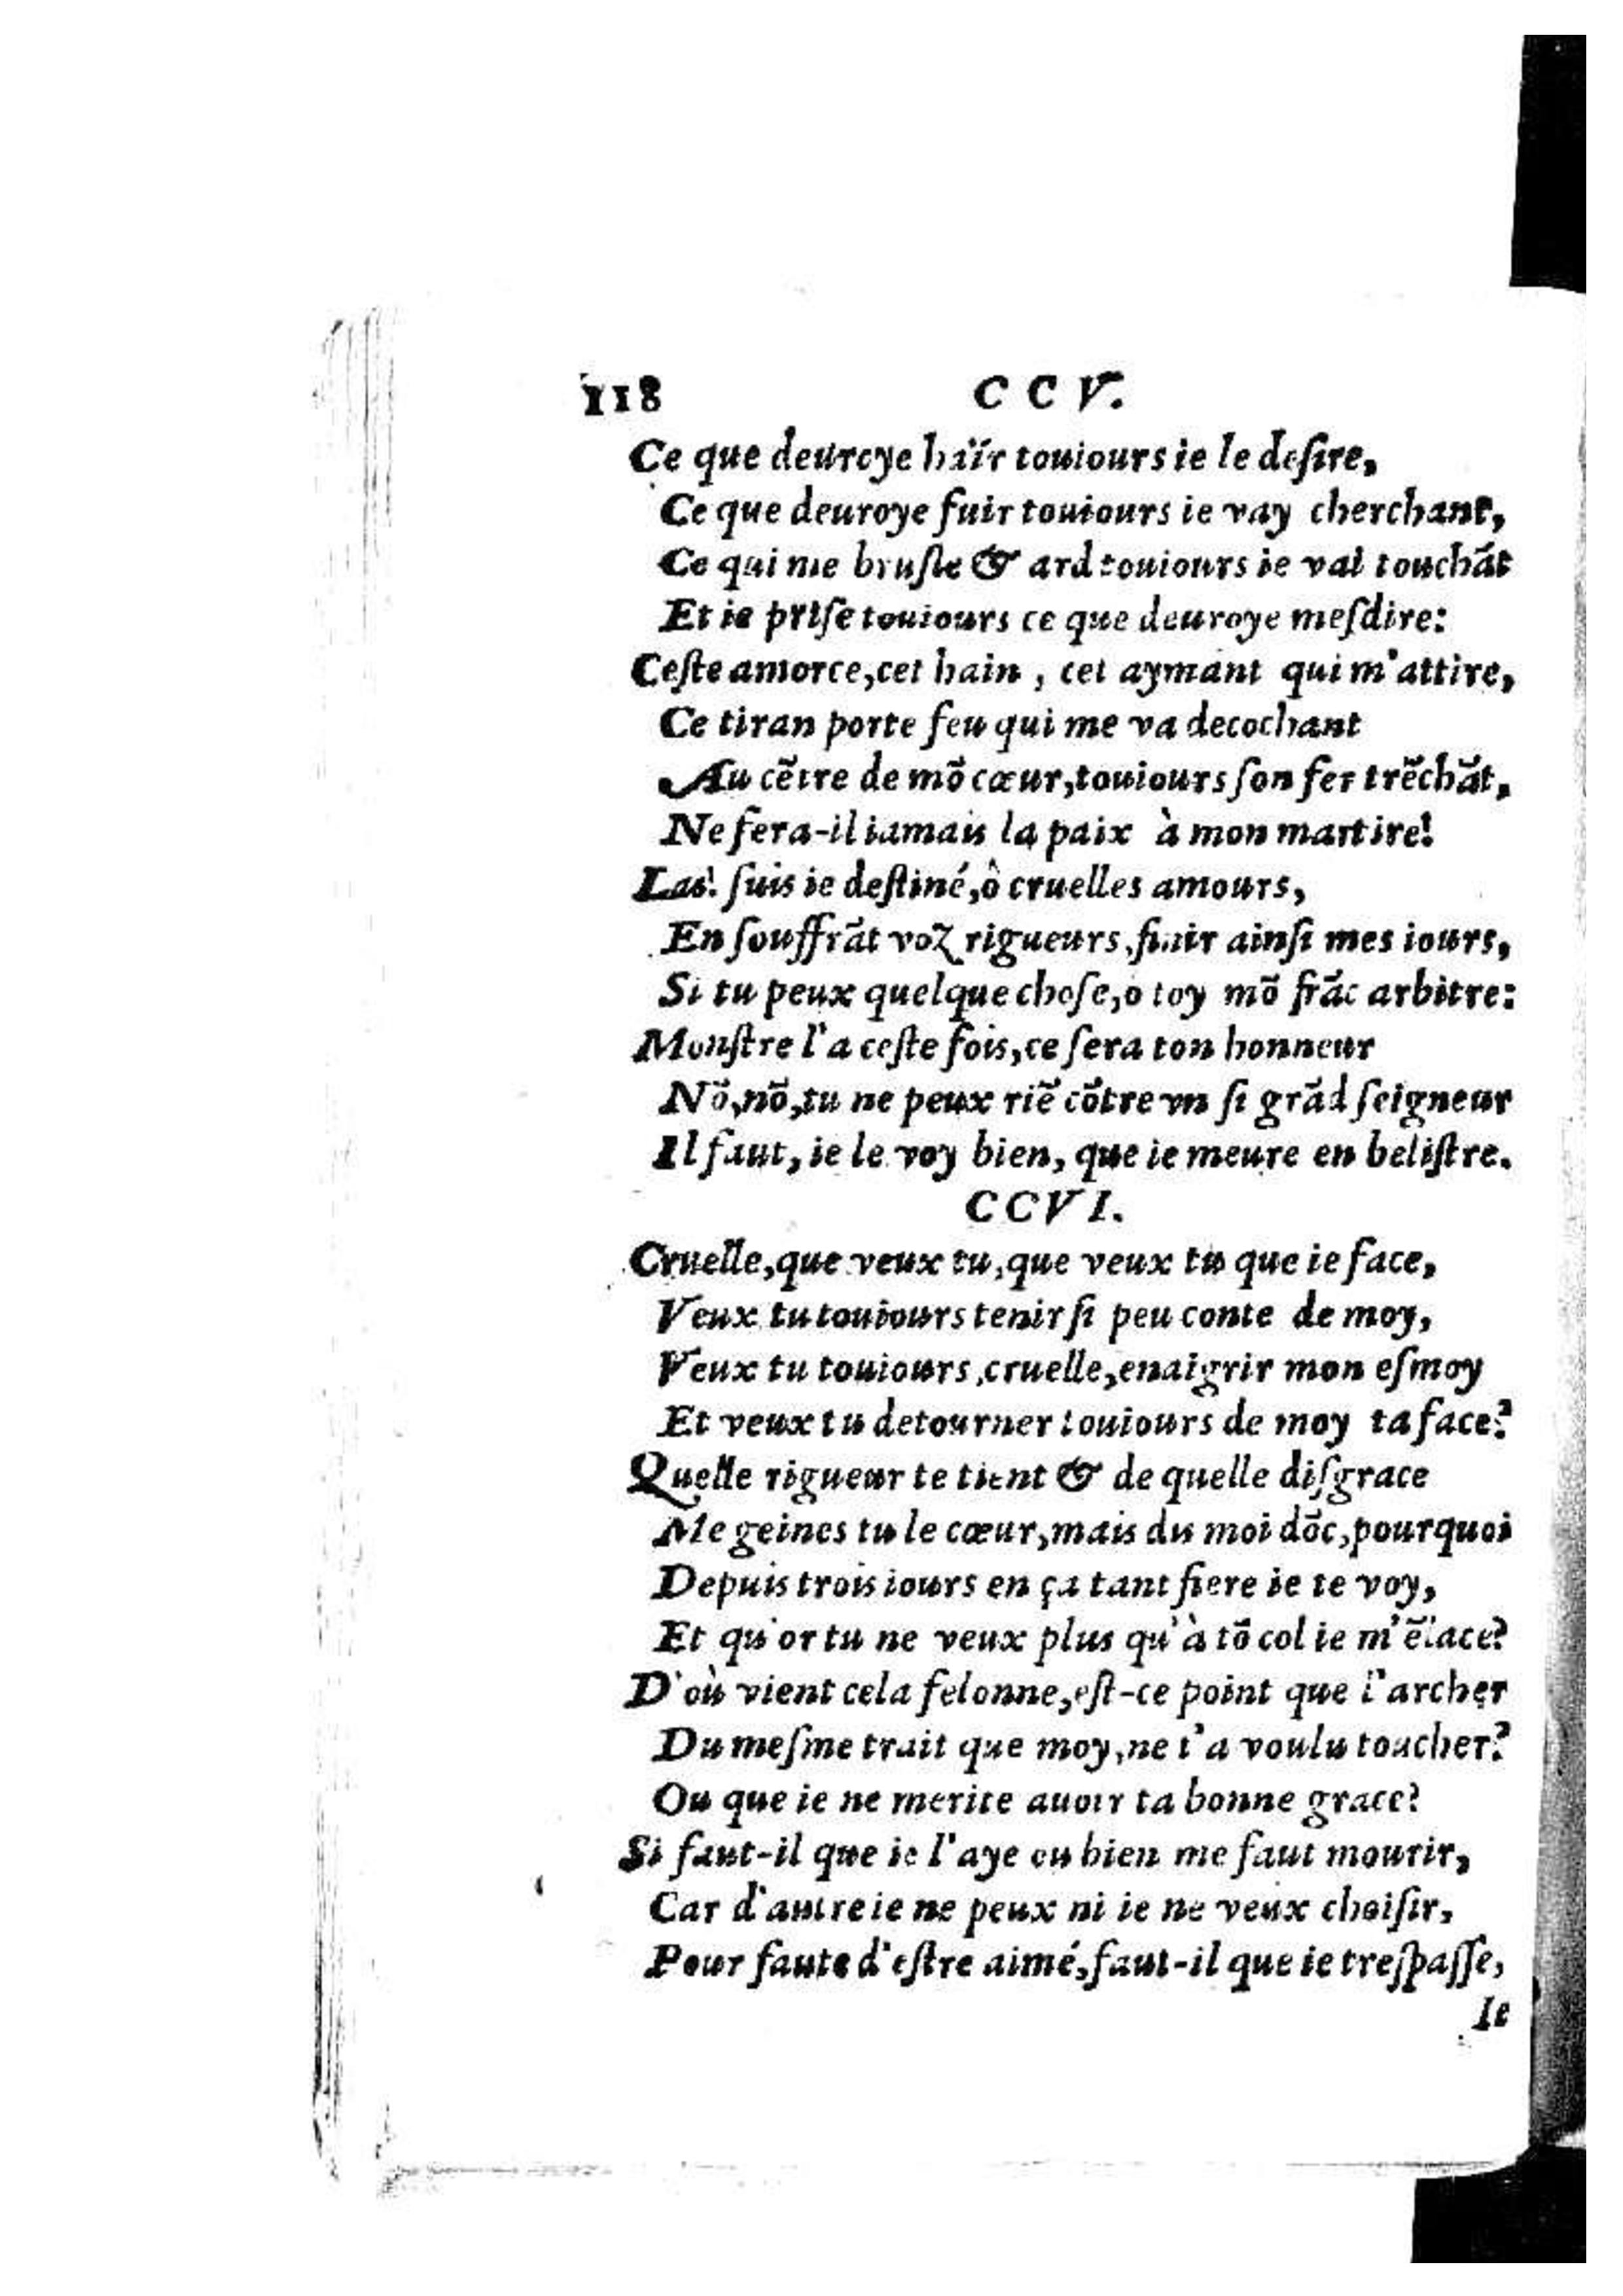 118 CCV.
Ce que deuroye haïr touiours ie le deſire,
Ce que deuroye fuir touiours ie vay cherchant,
Ce qui me bruſle & ard touiours ie vai touchãt
Et ie priſe touiours ce que deuroye meſdire:
Ceſte amorce, cet hain, cet aymant qui m'attire,
Ce tiran porte feu qui me va decochant
Au cẽtre de mõ cœur, touiours ſon fer trẽchãt,
Ne fera-il iamais la paix à mon martire!
Las! ſuis ie deſtiné, ô cruelles amours,
En ſouffrãt voz rigueurs, finir ainſi mes iours,
Si tu peux quelque choſe, o toy mõ frãc arbitre:
Monſtre l'a ceſte fois, ce ſera ton honneur
Nõ, nõ, tu ne peux riẽ cõtre vn ſi grãd ſeigneur
Il faut, ie le voy bien, que ie meure en beliſtre.
CCVI.
Cruelle, que veux tu, que veux tu que ie face,
Veux tu touiours tenir ſi peu conte de moy,
Veux tu touiours, cruelle, enaigrir mon eſmoy
Et veux tu detourner touiours de moy ta face?
Quelle rigueur te tient & de quelle diſgrace
Me geines tu le cœur, mais dis moi dõc, pourquoi
Depuis trois iours en ça tant fiere ie te voy,
Et qu'or tu ne veux plus qu'à tõ col ie m'ẽlace?
D'où vient cela felonne, eſt-ce point que l'archer
Du meſme trait que moy, ne t'a voulu toucher?
Ou que ie ne merite auoir ta bonne grace?
Si faut-il que ie l'aye ou bien me faut mourir,
Car d'autre ie ne peux ni ie ne veux choiſir,
Pour faute d'eſtre aimé, faut-il que ie treſpaſſe,
Ie